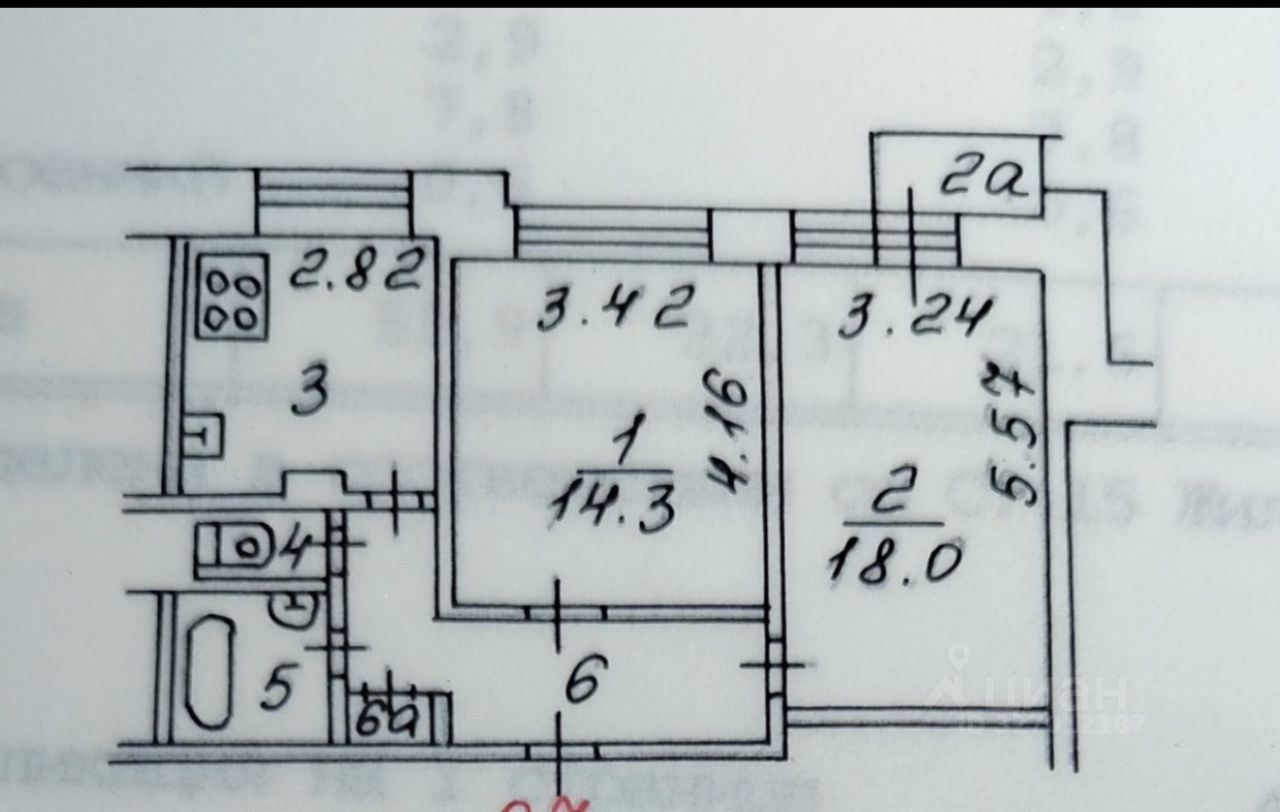 2,9
2,9
7,8
2а
2.82
3.42
3.24
3
4.16
5.57
1
14.3
2
18.0
4
5
6
6а
циан